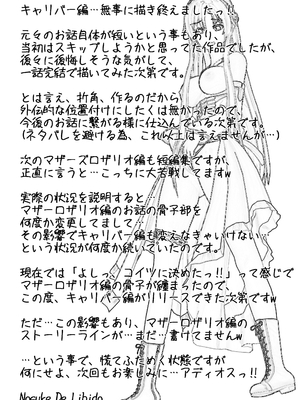 キャリバー編…無事に描き終えましたっ!!
元々のお話自体が短いという事もあり、
当初はスキップしようかと思ってた作品でしたが、
後々に後悔しそうな気がして、
一話完結で描いてみた次第です。
とは言え、折角、作るのだから
外伝的な位置付けにしたくは無かったので、
今後のお話に繋がる様に仕込んでいる次第です。
(ネタバレを避ける為、これ以上は言えませんが…)
次のマザーズロザリオ編も短編集ですが、
正直に言うと…こっちに大苦戦してますw
実際の状況を説明すると
マザーロザリオ編のお話の骨子部を
何度か変更してまして
その影響でキャリバー編も変えなきゃいけない…
という状況が何度か続いていたのです。
現在では「よしっ、コイツに決めたっ!!」って感じで
マザーロザリオ編の骨子が纏まったので、
この度、キャリバー編がリリースできた次第ですw
ただ…この影響もあり、マザーロザリオ編の
ストーリーラインが…まだ…書けてませんw
…という事で、慌てふためく状態ですが
何にせよ、次回もお楽しみに…アディオスっ!!
Nosuke De Libido